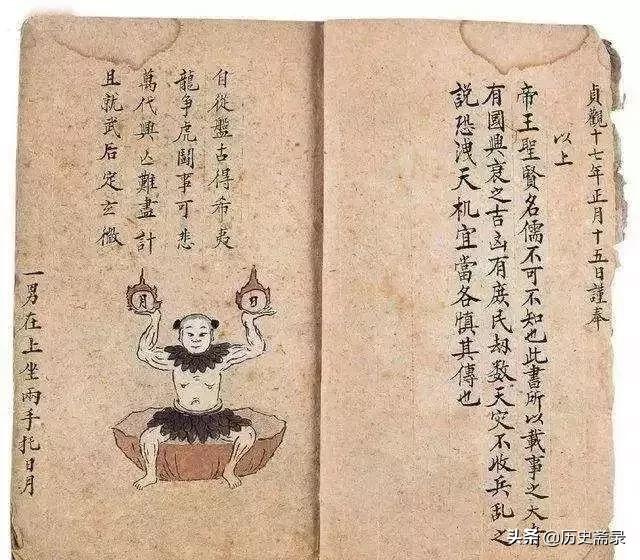 貞觀十七年正月十五日謹奉
以上
帝王聖賢名儒不可不知也此書所以載事之大
有國興衰之吉凶有庶民劫数天灾不收兵乱之
説恐洩天机宜當各慎其傳也
自從盤古得希夷
龍争虎鬪事可悲
萬代興亡難盡計
且就武后定玄微
日
月
一男在上坐兩手托日月
头条 @历史斋录